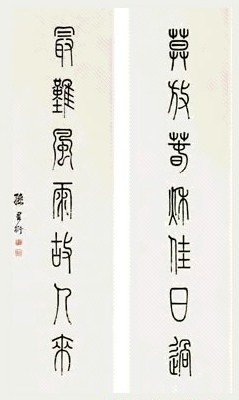 莫放春秋佳日過
最難風雨故人來
孫星衍